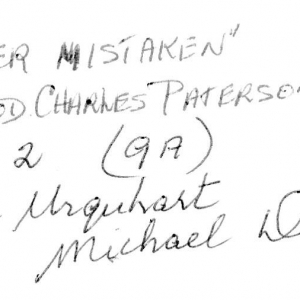 ER MISTAKEN"
OD. CHARLES PATERSO
2 (9A)
Urquhart
Michael